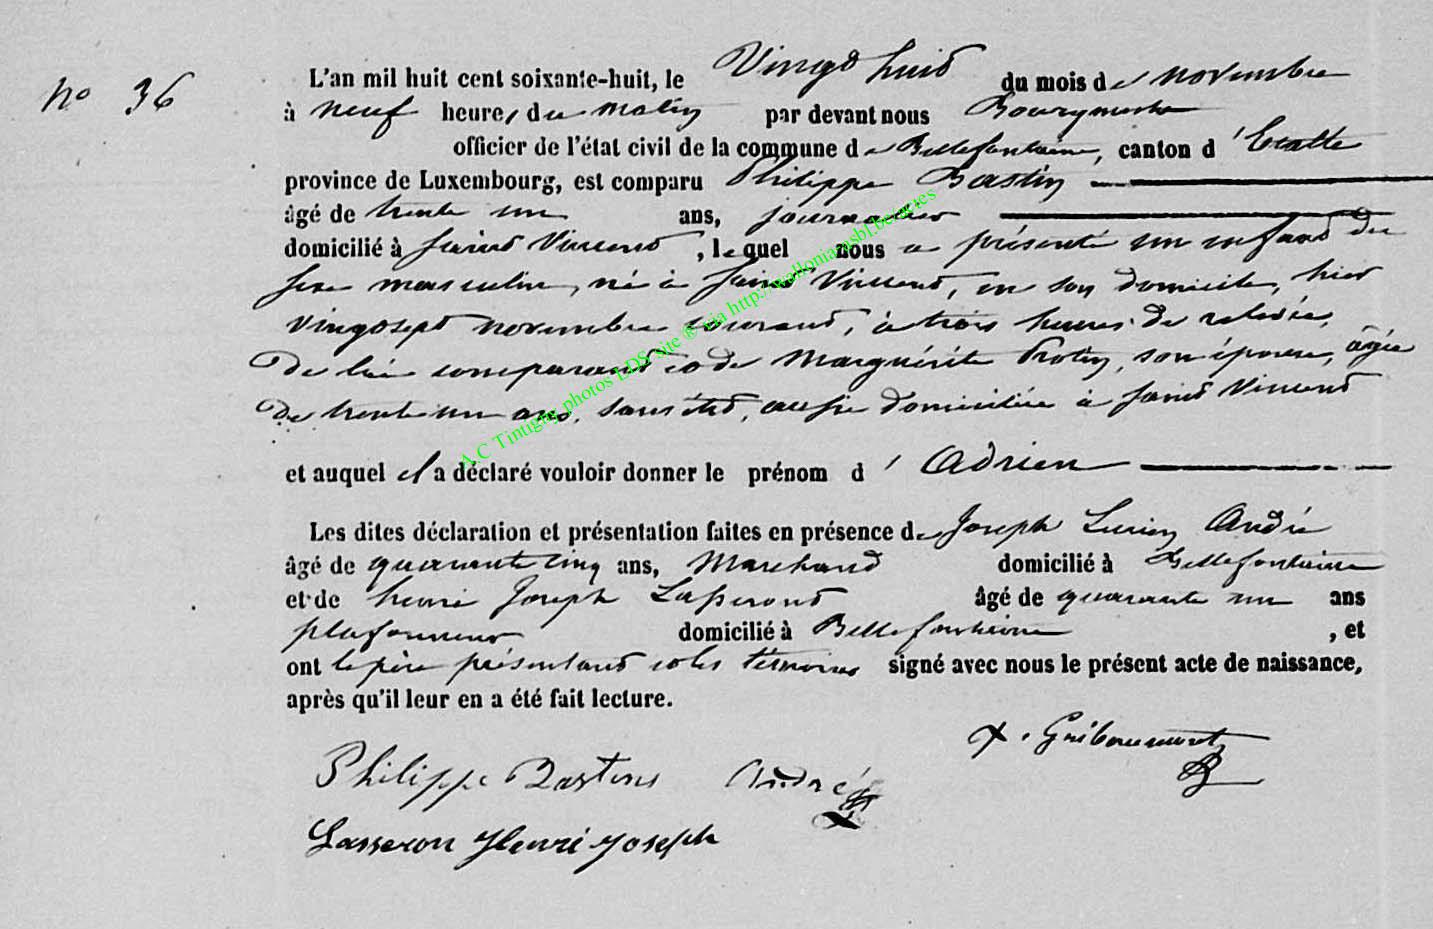 No 36
L'an mil huit cent soixante-huit, le Vingt huit du mois de novembre
à neuf heures du matin par devant nous Bourgmestre
officier de l'état civil de la commune de Bellefontaine, canton d'Etalle
province de Luxembourg, est comparu Philippe Bastin
âgé de trente un ans, journalier
domicilié à Saint Vincent, lequel nous a présenté un enfant du
sexe masculin, né à Saint Vincent, en son domicile, hier
vingt sept novembre courant, à trois heures de relevée,
De lui comparant et de Marguérite Protin, son épouse, âgée
De trente un ans, sans état, aussi domiciliée à Saint Vincent
et auquel il a déclaré vouloir donner le prénom d'Adrien
Les dites déclaration et présentation faites en présence de Joseph Lucien André
âgé de quarante cinq ans, Marchand domicilié à Bellefontaine
et de henri Joseph Lasseront âgé de quarante un ans
plafonneur domicilié à Bellefontaine, et
ont le père présentant et les témoins signé avec nous le présent acte de naissance,
après qu'il leur en a été fait lecture.
Gribaumont
Philippe Bastin André
Lasseron Henri Joseph
A.C Tintigny photos LDS site ® via http://wallonia-asbl.be/actes